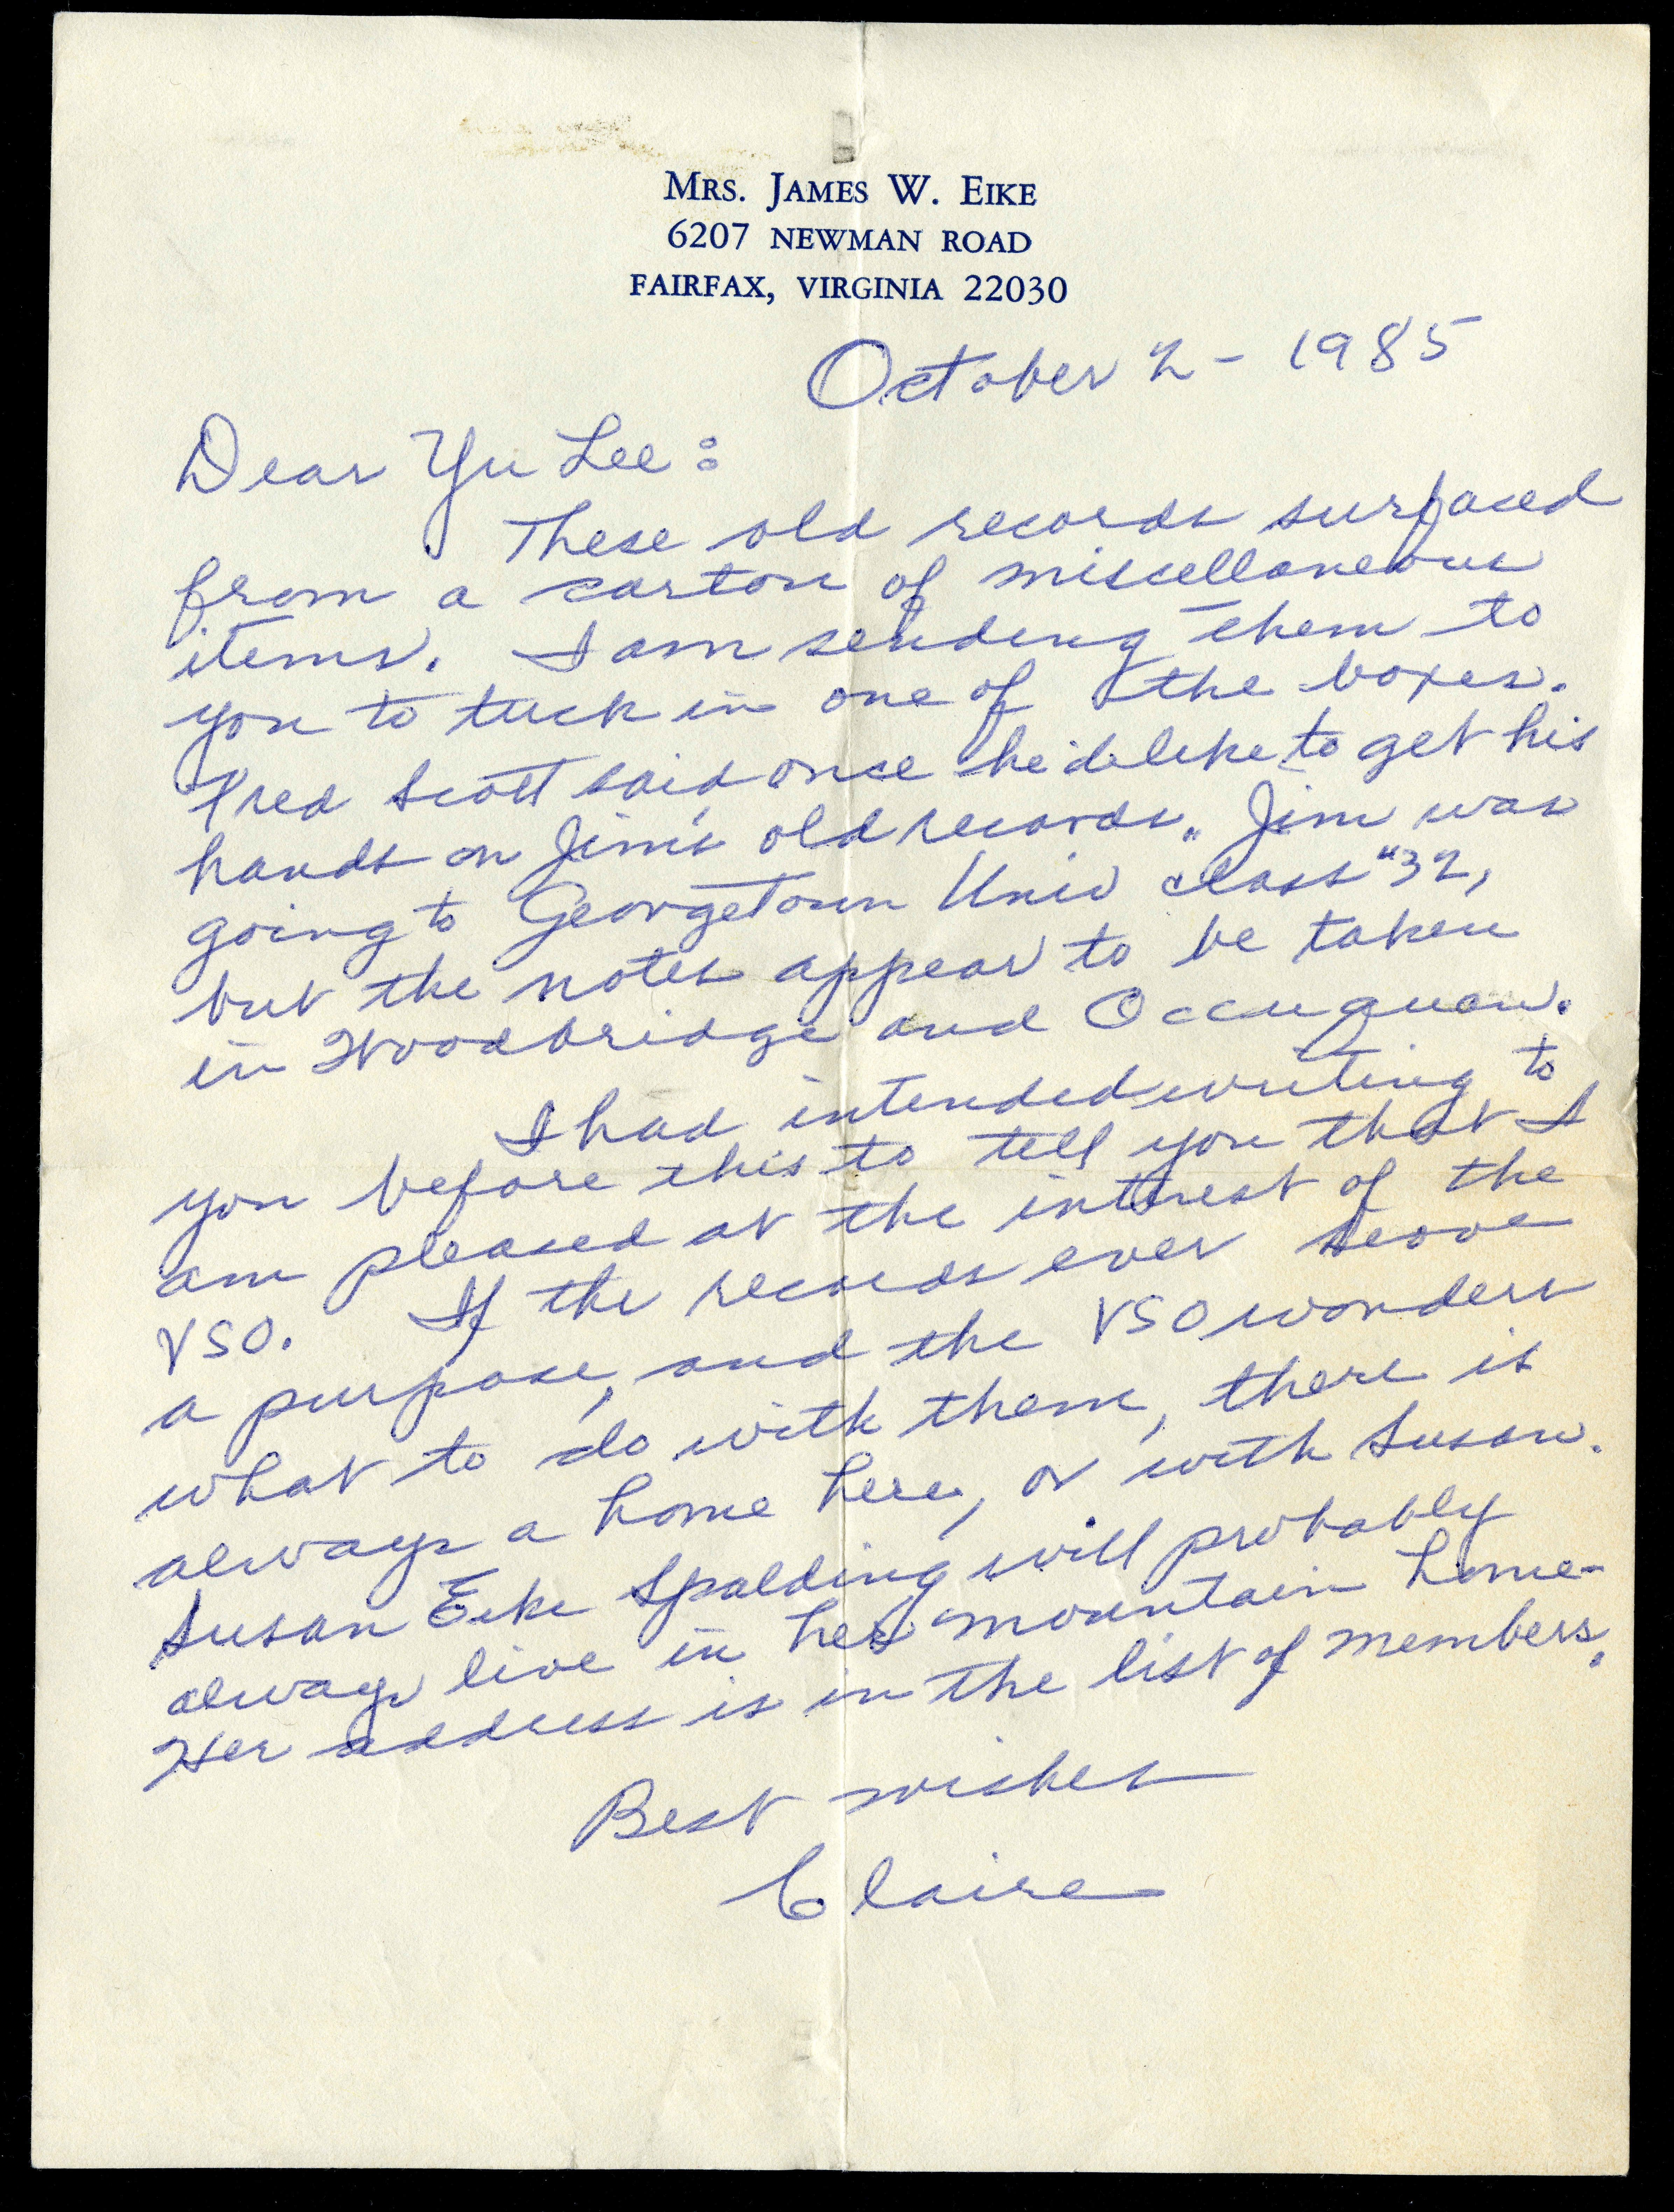 MRS. JAMES W. EIKE
6207 NEWMAN ROAD
FAIRFAX, VIRGINIA 22030
October 2 - 1985
Dear Yu Lee:
These old records surfaced
from a carton of miscellaneous
items. I am sending them to
you to tuck in one of the boxes.
Fred Scott said once he'd like to get his
hands on Jim's old records. Jim was
going to Georgetown Univ class "32,
but the notes appear to be taken
in Woodbridge and Occuquan.
I had intended writing to
you before this to tell you that I
am pleased at the intrest of the
VSO. If the records ever serve
a purpose, and the VSO wonders
what to do with them, there is
always a home here, or with Susan.
Susan Eike Spalding will probably
always live in her mountain home-
Her address is in the list of members.
Best wishes
Claire